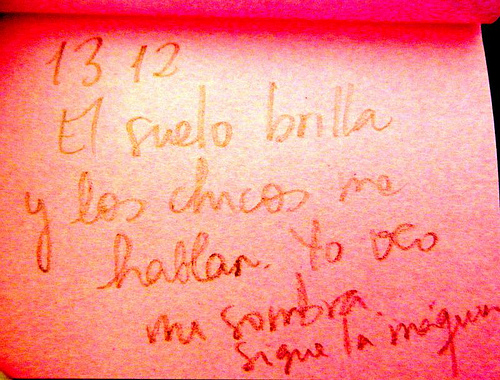 13 12
El suelo brilla
y los chicos me
hablan. Yo veo
mi sombra
sigue la máquina